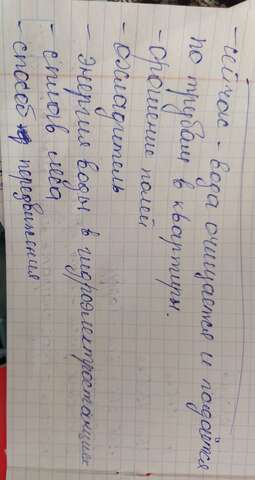 - сейчас - вода очищается и подаётся
по трубам в квартиры.
- орошение полей
- охладитель
- энергия воды в гидроэлектростанциях
- сплав леса
- способ передвижения